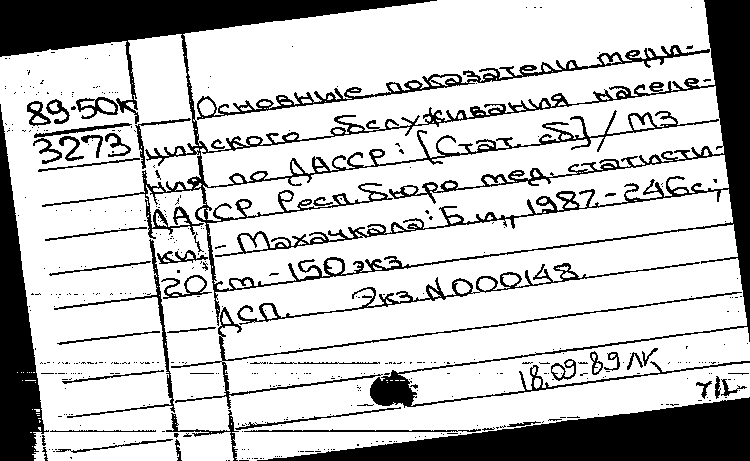 89-50к
3273
Основные показатели меди-
цинского обслуживания населе-
ния по ДАССР: [Стат. сб.] / МЗ
ДАССР. Респ. бюро мед. статисти-
ки. - Махачкала: Б.и., 1987. - 246с.;
20 см. - 150 экз.
ДСП. Экз. N000148.
18.09-89 ЛК